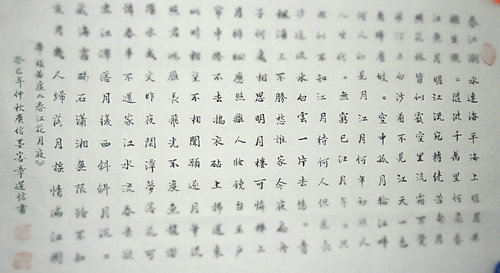 春江潮水連海平海上明月共
潮生灔々隨波千萬里何處春
江無月明江流宛轉繞芳甸
月照花林皆似霰空里流霜不覺
飛汀上白沙看不見江天一色
無纖塵皎々空中孤月輪江畔
何人初見月江月何年初照人
人生代々無窮已江月年々只
相似不知江月待何人但見長
江送流水白雲一片去悠々青
楓浦上不勝愁誰家今夜扁舟
子何處相思明月樓可憐樓上
月徘徊應照離人妝鏡台玉戶
簾中卷不去搗衣砧上拂還來
此時相望不相聞願逐月華流
照君鴻雁長飛光不度魚龍潛
躍水成文昨夜閑潭夢落花可
憐春半不還家江水流春去欲
盡江潭落月復西斜斜月沉々
藏海霧碣石瀟湘無限路不知
乘月幾人歸落月搖情滿江樹
唐張若虛《春江花月夜》
癸巳年仲秋廣信墨客李道信書